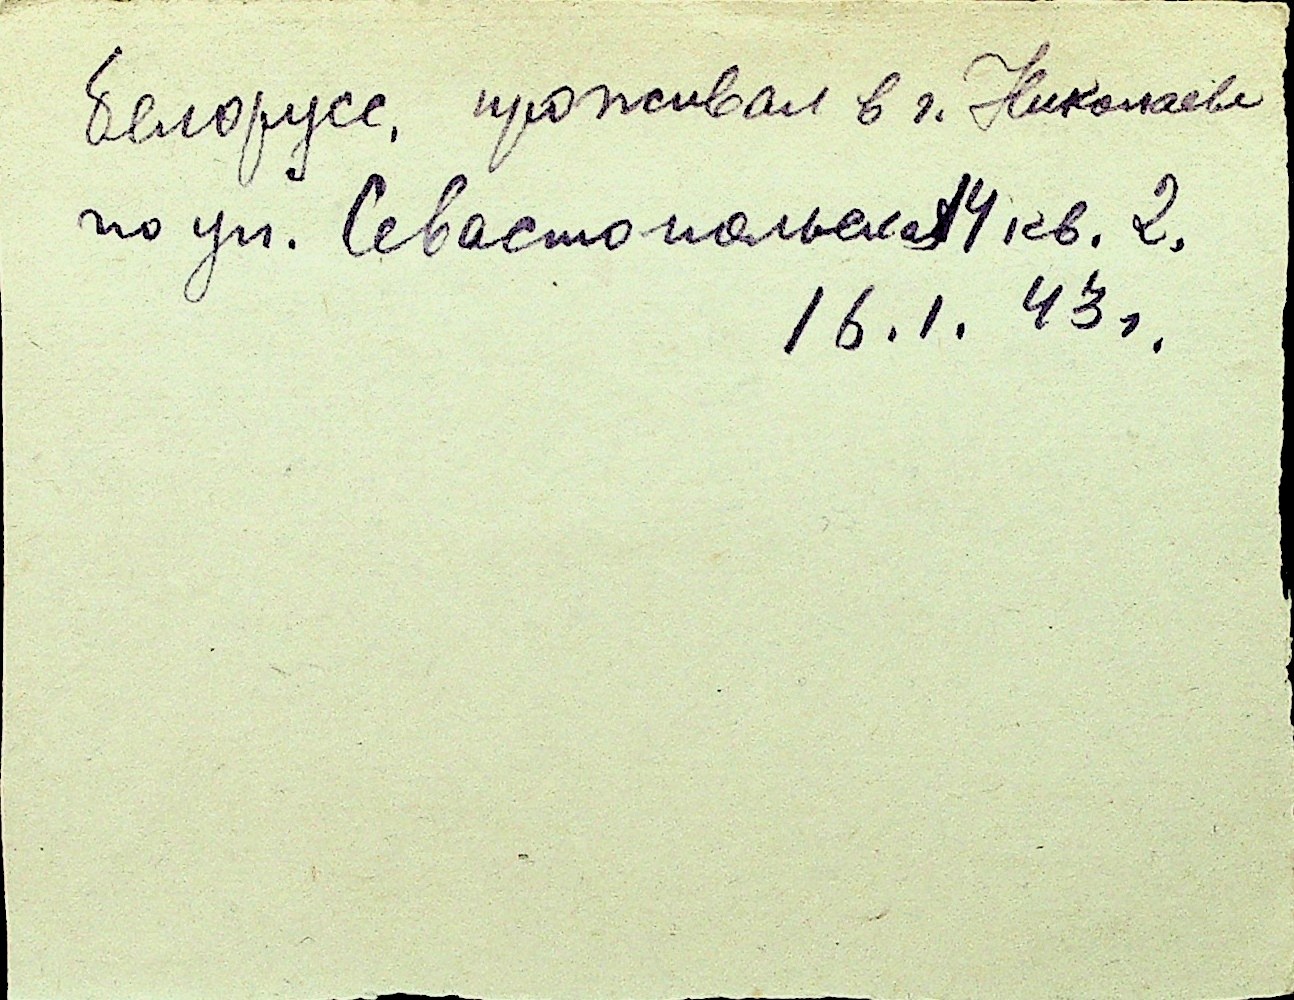 Белорусс, проживал в г. Николаеве
по ул. Севастопольская 14 кв. 2.
16.1. 43 г.